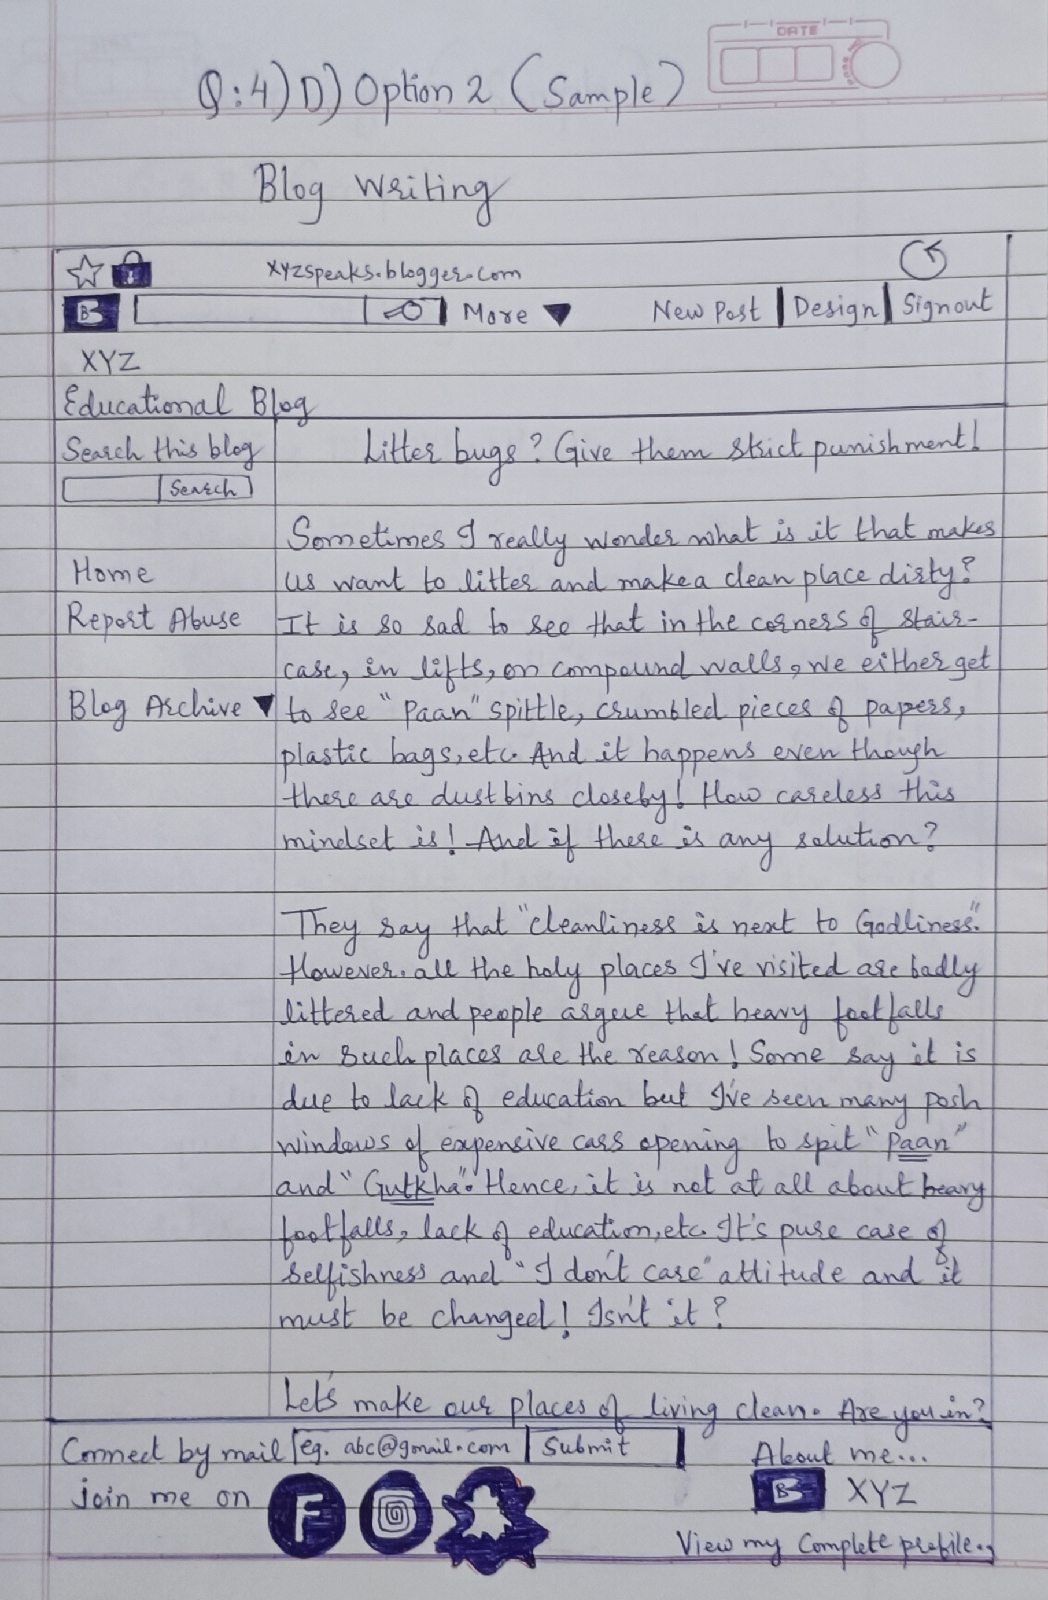 DATE
Q:4) D) Option 2 (Sample)
Blog Writing
xyzspeaks.blogger.com
B More ▼ New Post | Design | Signout
XYZ
Educational Blog
Search this blog
Search
Home
Report Abuse
Blog Archive ▼
Litter bugs? Give them strict punishment!
Sometimes I really wonder what is it that makes
us want to litter and make a clean place dirty?
It is so sad to see that in the corners of stair-
case, in lifts, on compound walls, we either get
to see "Paan" spittle, crumbled pieces of papers,
plastic bags, etc. And it happens even though
there are dustbins closeby! How careless this
mindset is! And if there is any solution?
They say that "cleanliness is next to Godliness."
However. all the holy places I've visited are badly
littered and people argue that heavy footfalls
in such places are the reason! Some say it is
due to lack of education but I've seen many posh
windows of expensive cars opening to spit "Paan"
and "Gutkha". Hence, it is not at all about heavy
footfalls, lack of education, etc. It's pure case of
selfishness and "I don't care" attitude and it
must be changed! Isn't it?
Let's make our places of living clean. Are you in?
Connect by mail eg. abc@gmail.com | Submit
join me on F
About me...
B XYZ
View my Complete profile..